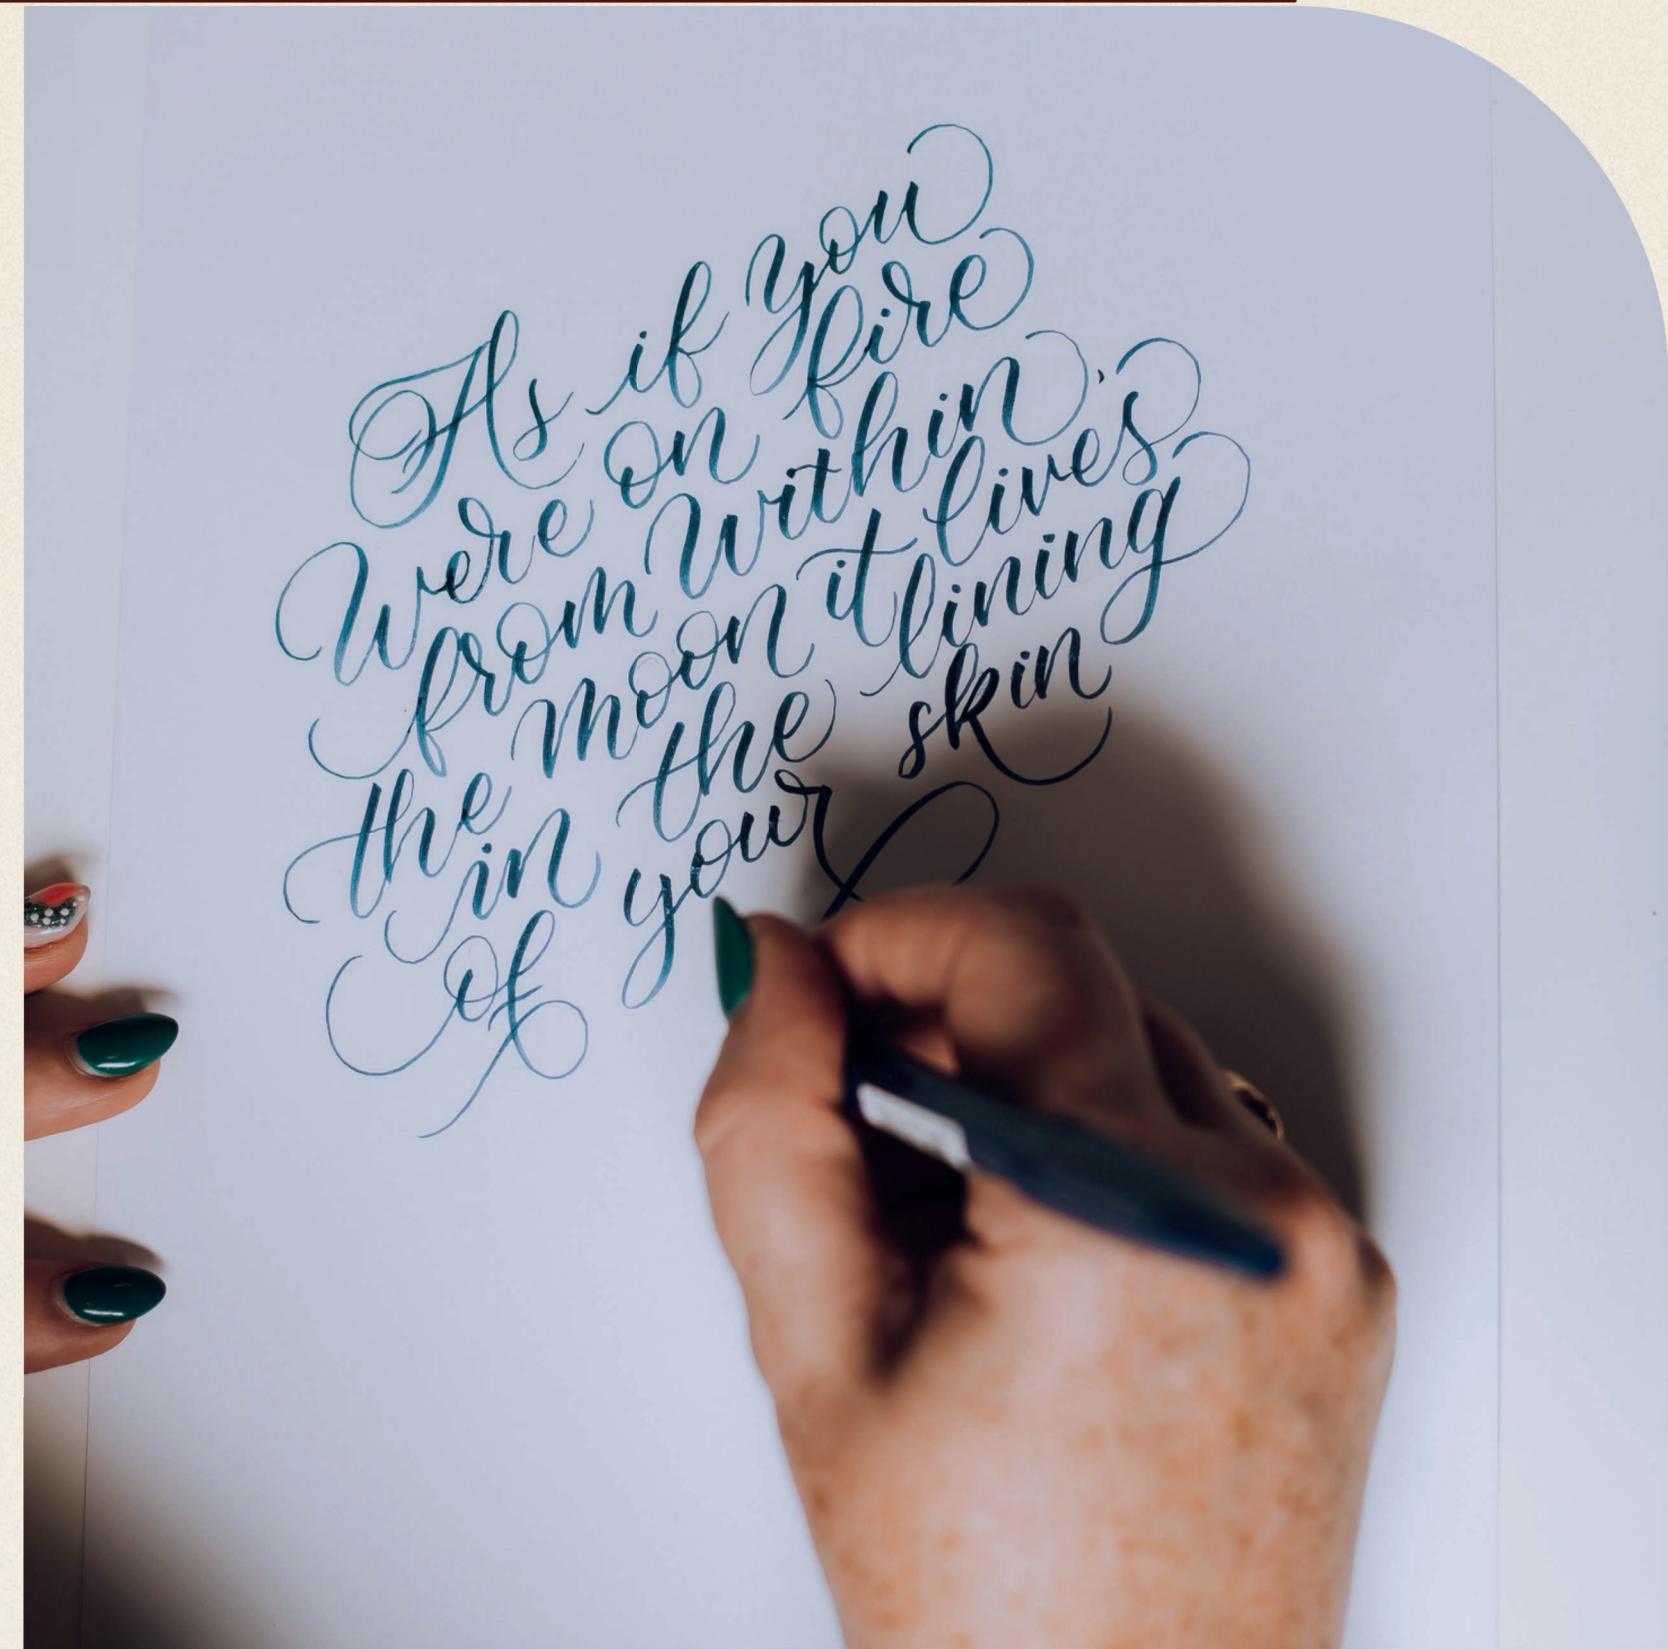 As if you
Were on fire
from Within.
the moon it lives
in the lining
of your skin